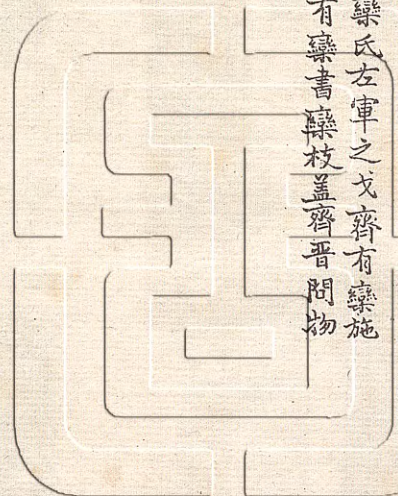 欒氏左軍之戈齊有欒施
有欒書欒枝盖齊晋間物